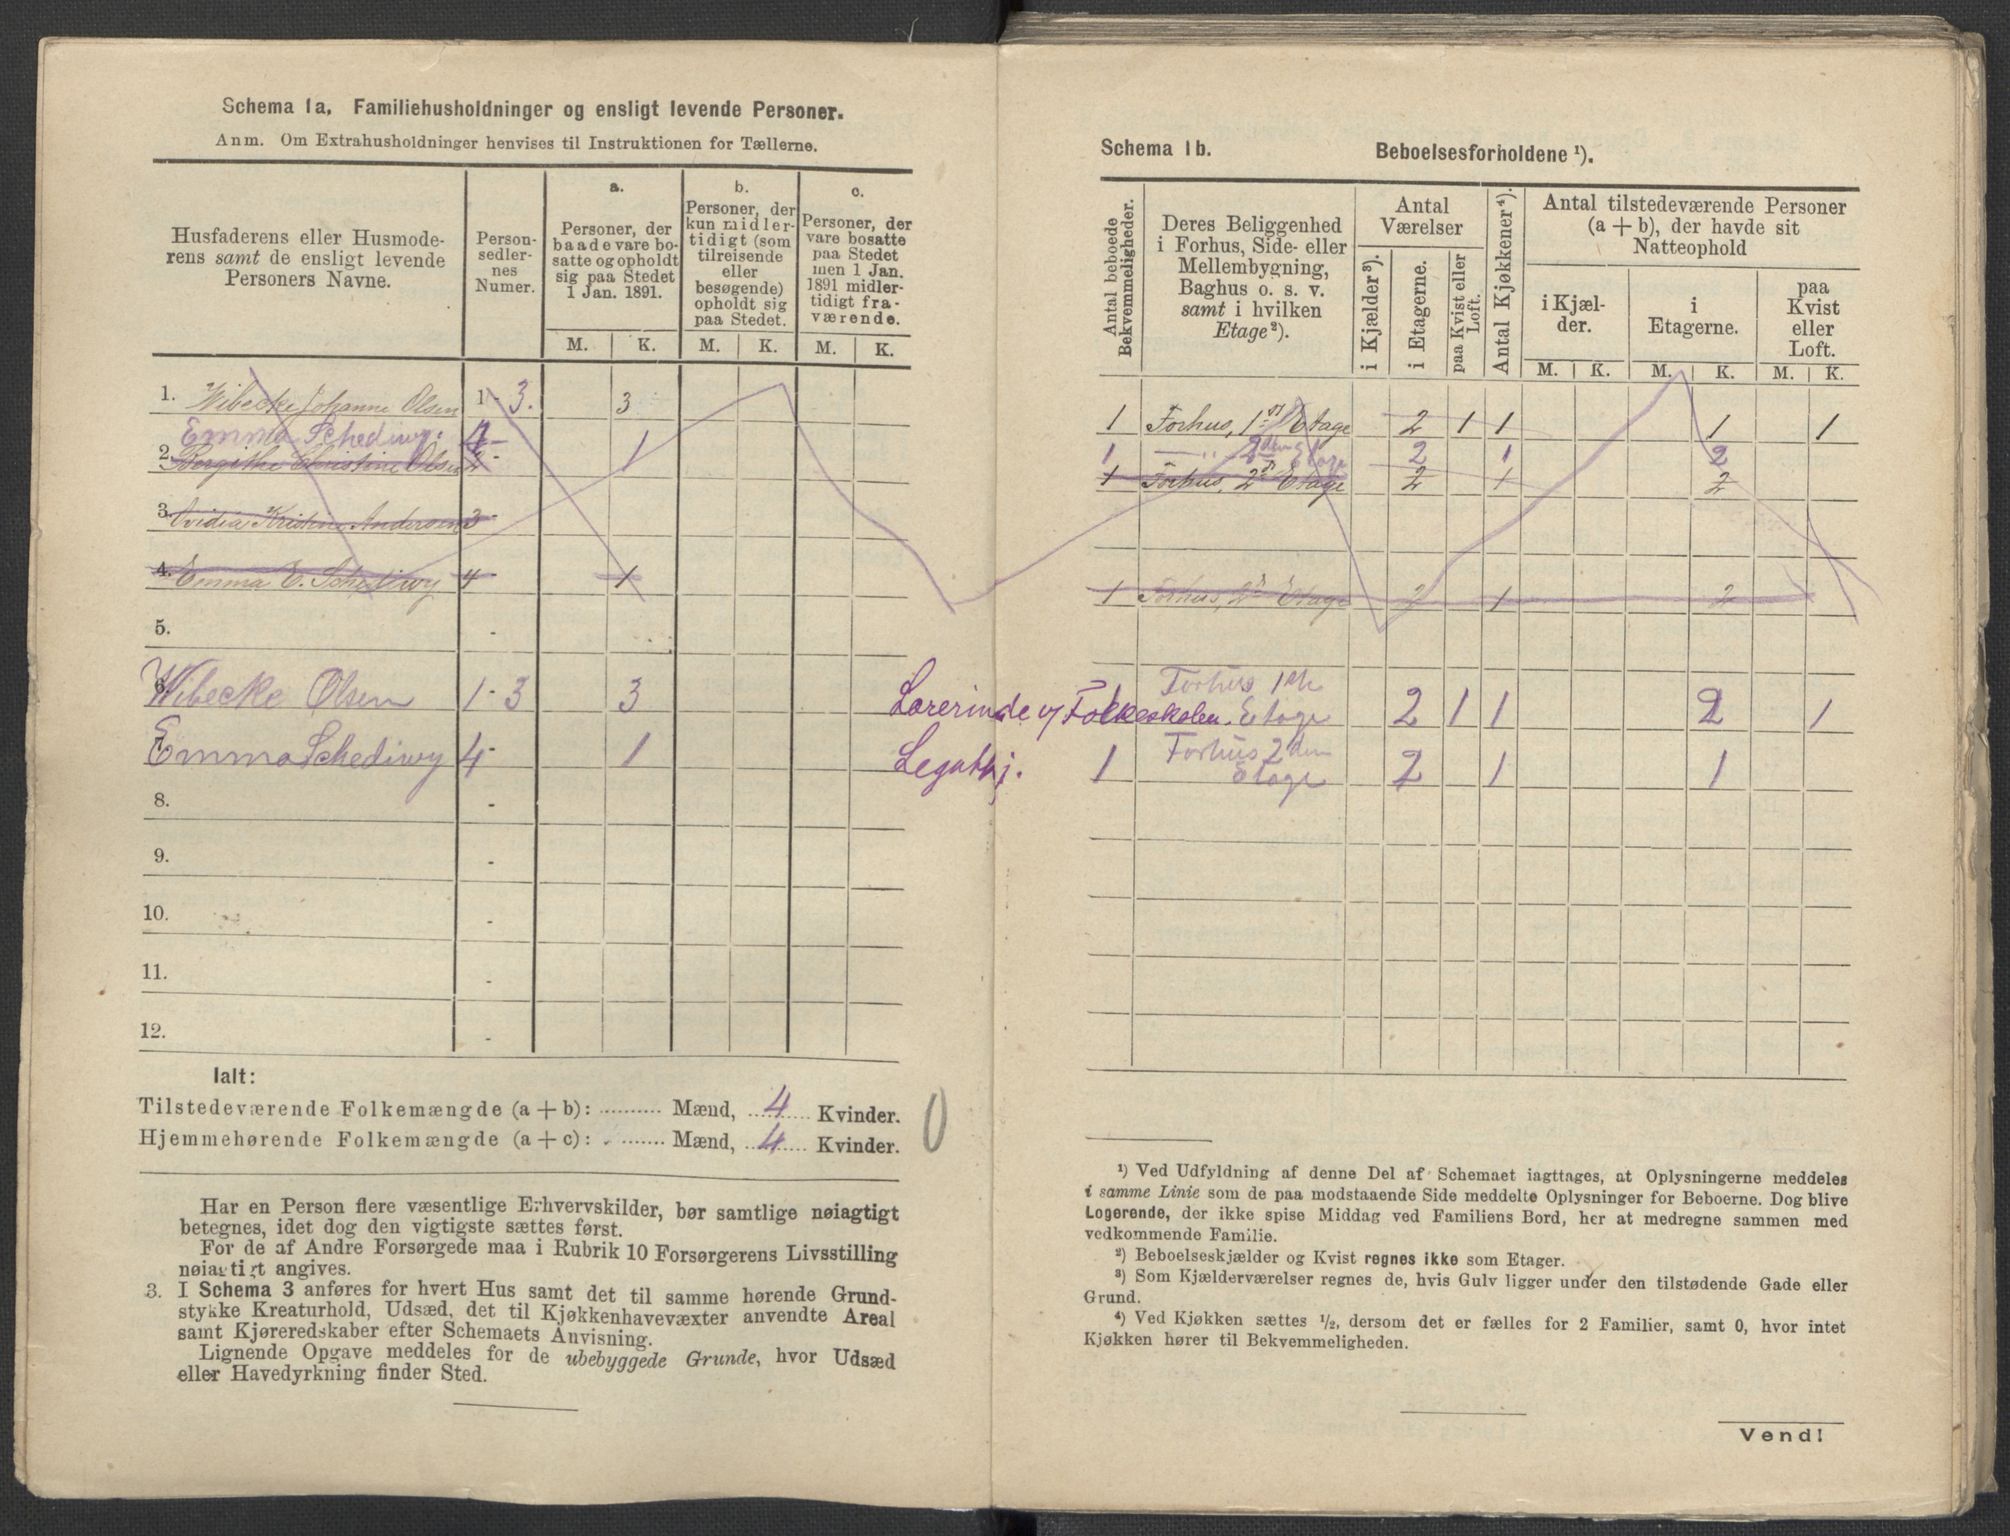 Schema 1a. Familiehusholdninger og ensligt levende Personer.
Anm. Om Extrahusholdninger henvises til Instruktionen for Tællerne.
Husfaderens eller Husmode-
rens samt de ensligt levende
Personers Navne.
Person-
sedler-
nes
Numer.
a.
Personer, der
baade vare bo-
satte og opholdt
sig paa Stedet
1 Jan. 1891.
b.
Personer, der
kun midler-
tidigt (som
tilreisende
eller
besøgende)
opholdt sig
paa Stedet.
c.
Personer, der
vare bosatte
paa Stedet
men 1 Jan.
1891 midler-
tidigt fra-
værende.
M. K. M. K. M. K.
1. Wibecke Johanne Olsen 1 - 3. 3
Emma Schediwy. 4 1
2. Bergithe Christine Olsen 2 -
3. Ovidia Kristine Andersen 3 -
4. Emma E. Schediwy 4 - 1
5. -
6. Wibecke Olsen 1 - 3 3
Emma Schediwy 4 - 1
8. -
9. -
10. -
11. -
12. -
Ialt:
Tilstedeværende Folkemængde (a + b): .......... Mænd, 4 Kvinder.
Hjemmehørende Folkemængde (a + c): .......... Mænd, 4 Kvinder.
0
Har en Person flere væsentlige Erhvervskilder, bør samtlige nøiagtigt
betegnes, idet dog den vigtigste sættes først.
For de af Andre Forsørgede maa i Rubrik 10 Forsørgerens Livsstilling
nøiagtigt angives.
3. I Schema 3 anføres for hvert Hus samt det til samme hørende Grund-
stykke Kreaturhold, Udsæd, det til Kjøkkenhavevæxter anvendte Areal
samt Kjøreredskaber efter Schemaets Anvisning.
Lignende Opgave meddeles for de ubebyggede Grunde, hvor Udsæd
eller Havedyrkning finder Sted.
Schema 1b. Beboelsesforholdene ¹).
Antal beboede
Bekvemmeligheder.
Deres Beliggenhed
i Forhus, Side- eller
Mellembygning,
Baghus o. s. v.
samt i hvilken
Etage ²).
Antal
Værelser
i Kjælder ³).
i Etagerne.
paa Kvist eller
Loft.
Antal Kjøkkener ⁴).
Antal tilstedeværende Personer
(a + b), der havde sit
Natteophold
i Kjæl-
der.
i
Etagerne.
paa
Kvist
eller
Loft.
M. K. M. K. M. K.
1 Forhus, 1ste Etage 2 1 1 1 1
1 — „ — 2den Etage 2 1 2
1 Forhus, 2den Etage 2 1 2
1 Forhus, 2den Etage 2 1 2
Lærerinde v/ Folkeskolen. 1 Forhus 1ste Etage 2 1 1 2 1
Legathj. 1 Forhus 2den Etage 2 1 1
¹) Ved Udfyldning af denne Del af Schemaet iagttages, at Oplysningerne meddeles
i samme Linie som de paa modstaaende Side meddelte Oplysninger for Beboerne. Dog blive
Logerende, der ikke spise Middag ved Familiens Bord, her at medregne sammen med
vedkommende Familie.
²) Beboelseskjælder og Kvist regnes ikke som Etager.
³) Som Kjælderværelser regnes de, hvis Gulv ligger under den tilstødende Gade eller
Grund.
⁴) Ved Kjøkken sættes ½, dersom det er fælles for 2 Familier, samt 0, hvor intet
Kjøkken hører til Bekvemmeligheden.
Vend!